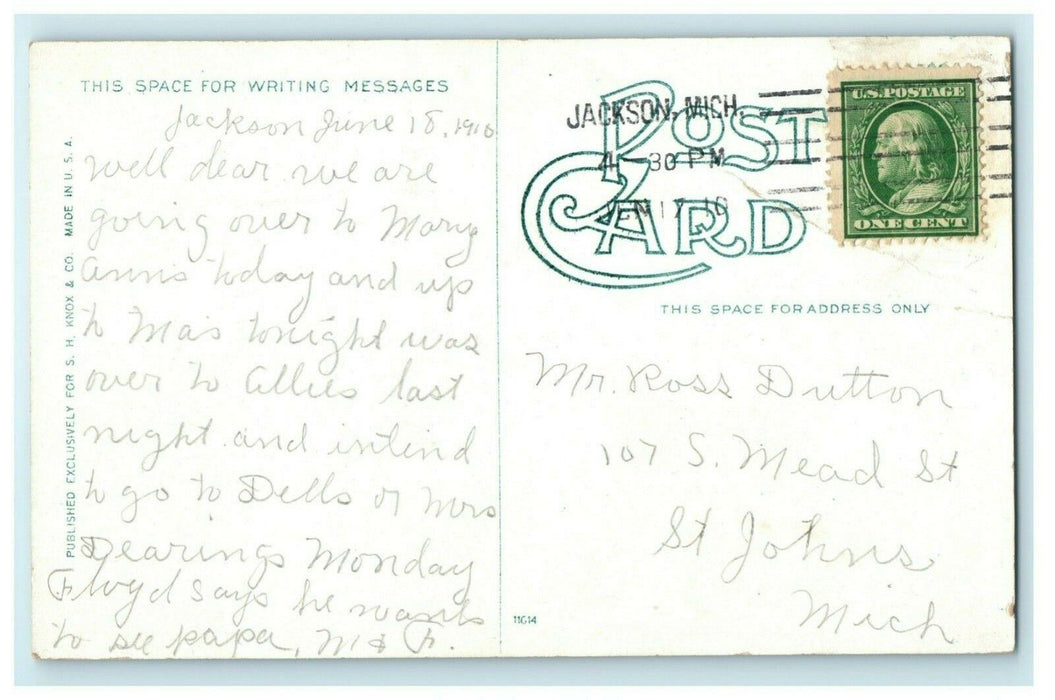 THIS SPACE FOR WRITING MESSAGES
Jackson June 18, 1910
well dear we are
going over to Mary
Anns today and up
to Ma's tonight was
over to Allies last
night and intend
to go to Dells or Mrs
Dearings Monday
Floyd says he wants
to see papa, M & F.
PUBLISHED EXCLUSIVELY FOR S. H. KNOX & CO. MADE IN U. S. A.
POST
CARD
JACKSON, MICH.
4 30 PM
17 10
U.S. POSTAGE
ONE CENT
THIS SPACE FOR ADDRESS ONLY
Mr. Ross Dutton
107 S. Mead St
St Johns
Mich
11614